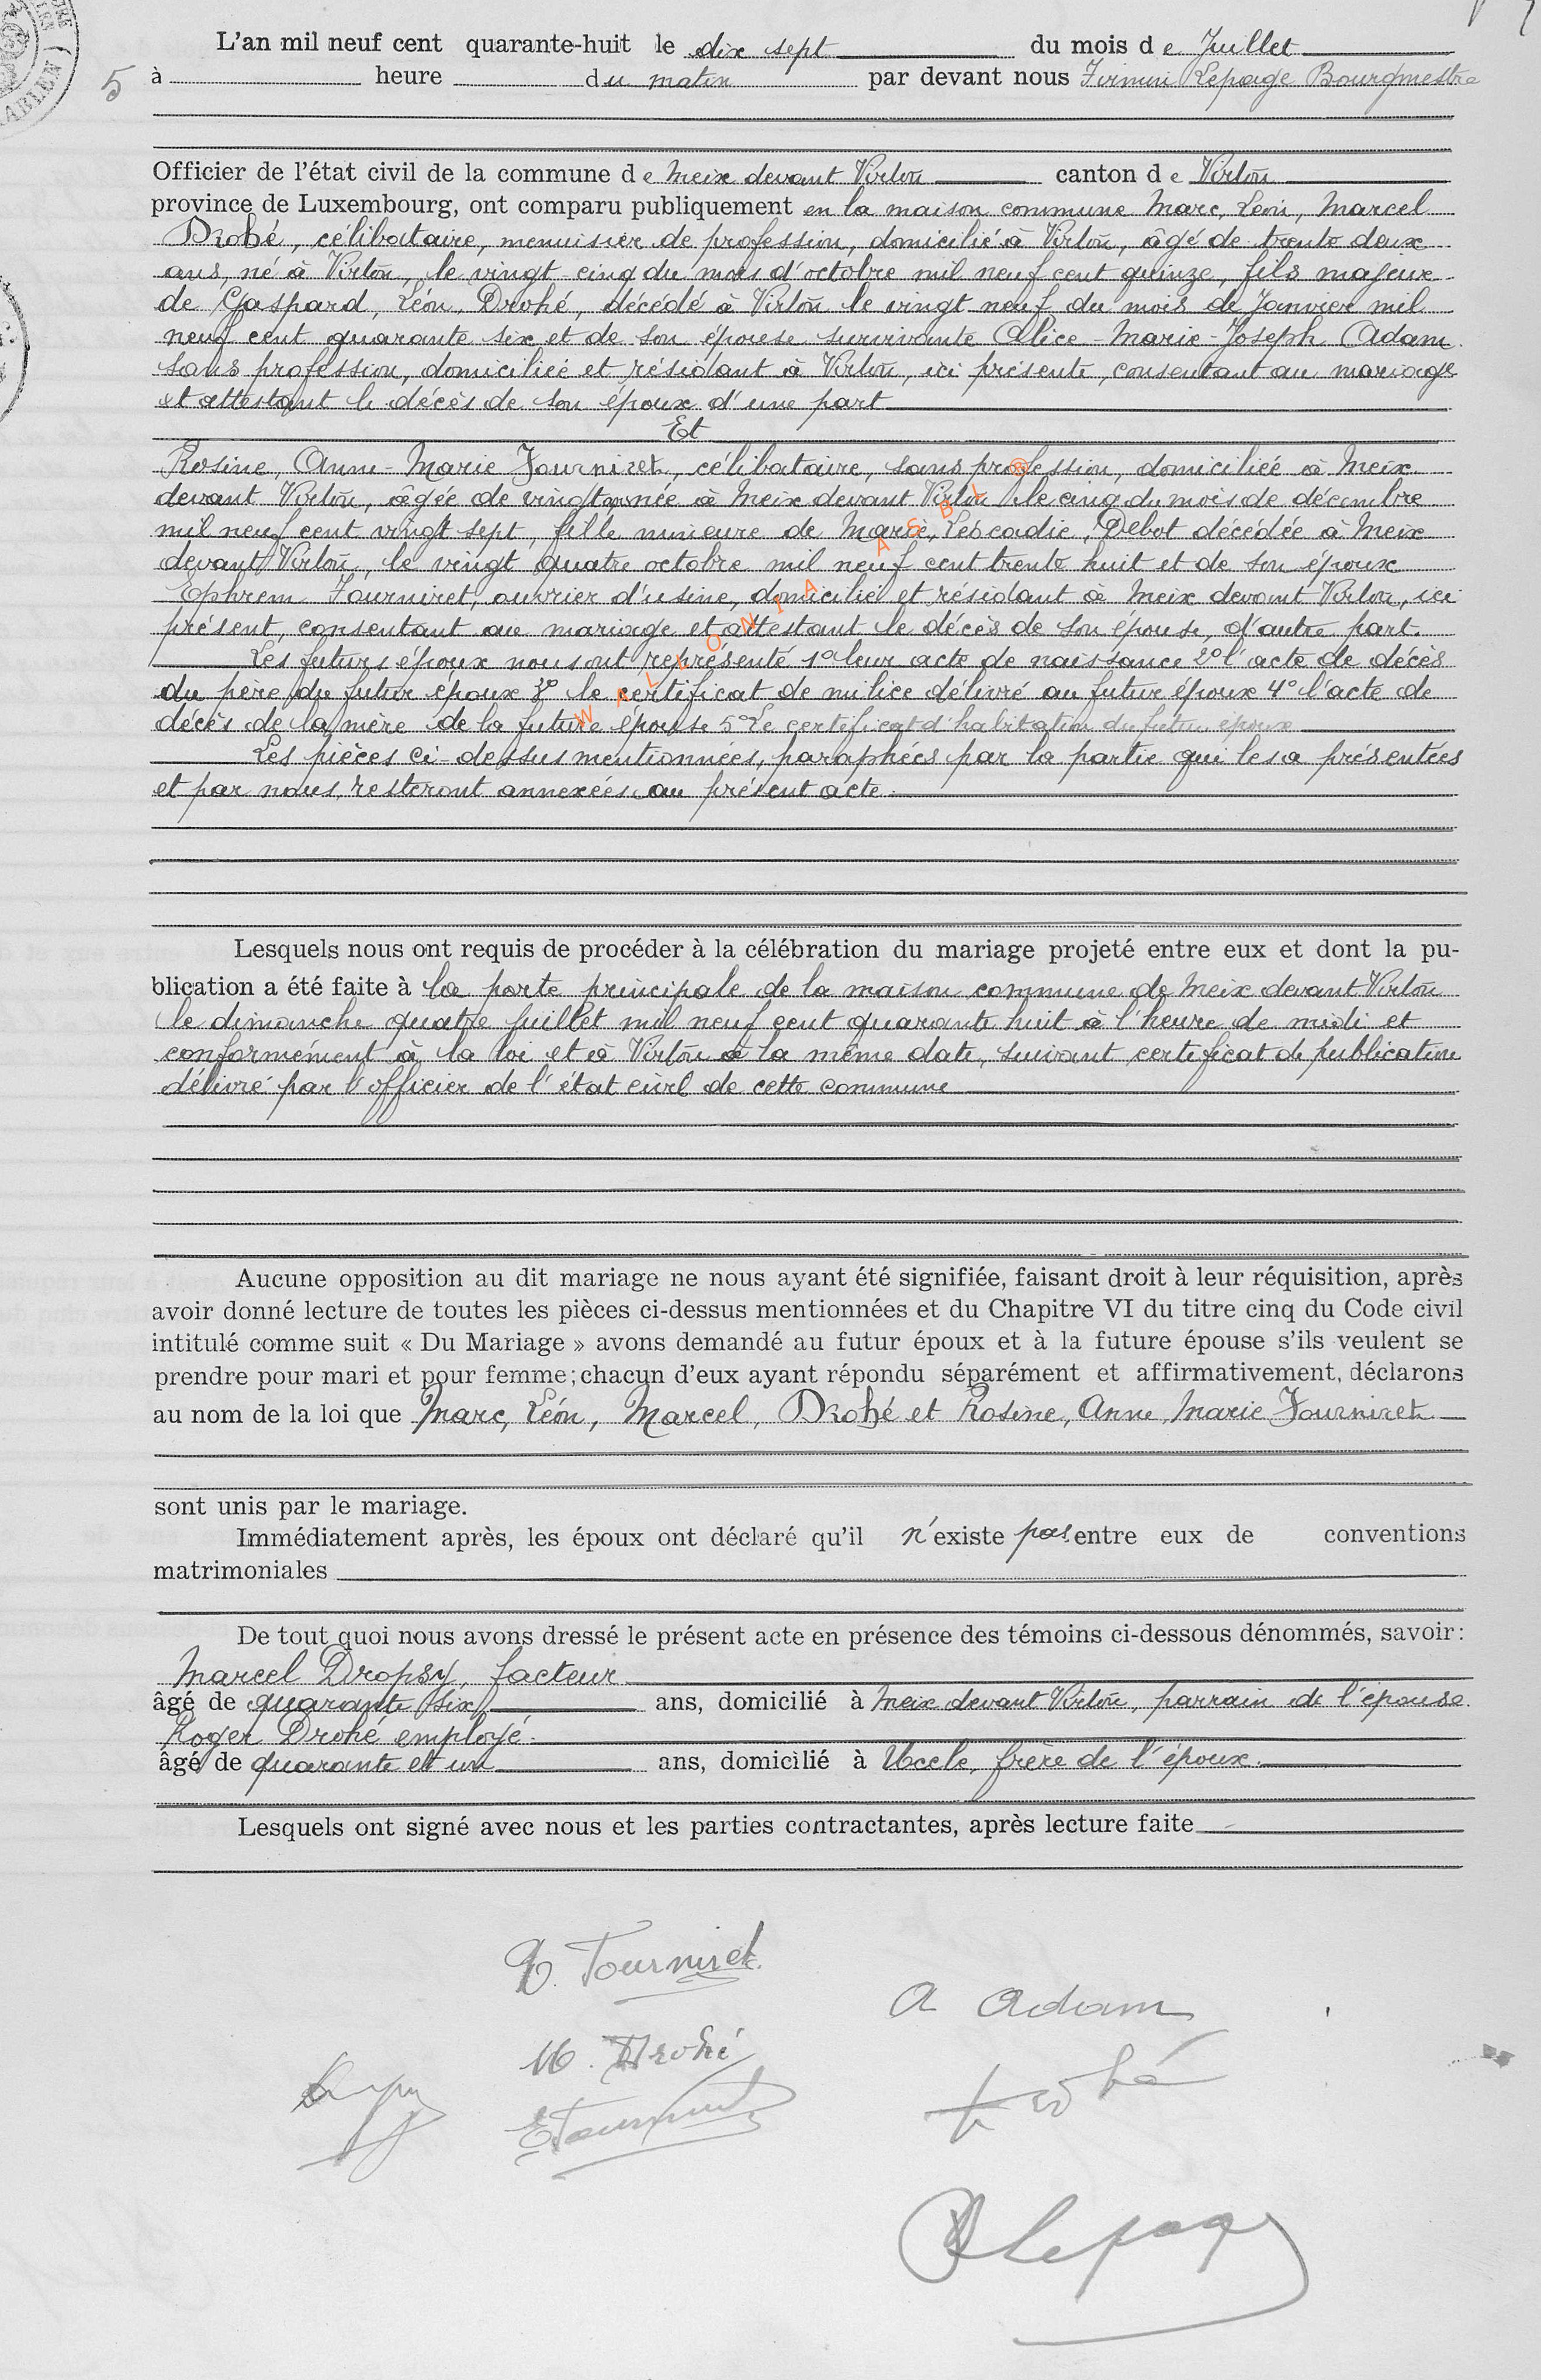 L'an mil neuf cent quarante-huit le dix sept du mois de Juillet
5 à heure du matin par devant nous Firmin Lepage Bourgmestre
Officier de l'état civil de la commune de Meix devant Virton canton de Virton
province de Luxembourg, ont comparu publiquement en la maison commune Marc, Léon, Marcel
Drohé, célibataire, menuisier de profession, domicilié à Virton, âgé de trente deux
ans, né à Virton, le vingt-cinq du mois d'octobre mil neuf cent quinze, fils majeur
de Gaspard, Léon, Drohé, décédé à Virton le vingt neuf du mois de Janvier mil
neuf cent quarante six et de son épouse survivante Alice-Marie-Joseph Adam
sans profession, domiciliée et résidant à Virton, ici présente, consentant au mariage
et attestant le décès de son époux d'une part
Et
Rosine, Anne-Marie Fourniret, célibataire, sans profession, domiciliée à Meix
devant Virton, âgée de vingt ans née à Meix devant Virton le cinq du mois de décembre
mil neuf cent vingt sept, fille mineure de Marie, Léocadie, Debot décédée à Meix
devant Virton, le vingt quatre octobre mil neuf cent trente huit et de son époux
Ephrem Fourniret, ouvrier d'usine, domicilié et résidant à Meix devant Virton, ici
présent, consentant au mariage et attestant le décès de son épouse, d'autre part.
Les futurs époux nous ont représenté 1° leur acte de naissance 2° l'acte de décès
du père du futur époux 3° le certificat de milice délivré au futur époux 4° l'acte de
décès de la mère de la future épouse 5° Le certificat d'habitation du futur époux
Les pièces ci-dessus mentionnées, paraphées par la partie qui les a présentées
et par nous, resteront annexées au présent acte.
WALLONIA ASBL ®
Lesquels nous ont requis de procéder à la célébration du mariage projeté entre eux et dont la pu-
blication a été faite à la porte principale de la maison commune de Meix devant Virton
le dimanche quatre juillet mil neuf cent quarante huit à l'heure de midi et
conformément à la loi et à Virton à la même date, suivant certificat de publication
délivré par l'officier de l'état civil de cette commune
Aucune opposition au dit mariage ne nous ayant été signifiée, faisant droit à leur réquisition, après
avoir donné lecture de toutes les pièces ci-dessus mentionnées et du Chapitre VI du titre cinq du Code civil
intitulé comme suit « Du Mariage » avons demandé au futur époux et à la future épouse s'ils veulent se
prendre pour mari et pour femme; chacun d'eux ayant répondu séparément et affirmativement, déclarons
au nom de la loi que Marc, Léon, Marcel, Drohé et Rosine, Anne, Marie Fourniret
sont unis par le mariage.
Immédiatement après, les époux ont déclaré qu'il n'existe pas entre eux de conventions
matrimoniales
De tout quoi nous avons dressé le présent acte en présence des témoins ci-dessous dénommés, savoir:
Marcel Dropsy, facteur
âgé de quarante six ans, domicilié à Meix devant Virton, parrain de l'épouse
Roger Drohé employé.
âgé de quarante et un ans, domicilié à Uccle, frère de l'époux.
Lesquels ont signé avec nous et les parties contractantes, après lecture faite
Fourniret
A Adam
M. Drohé
Drohé
E Fourniret
Lepage